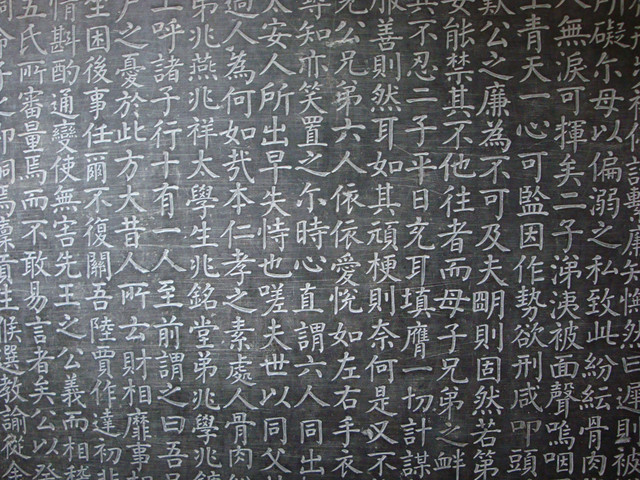 矣 然曰遲則被
所礙尔母以偏溺之私致此紛紜骨肉
人無淚可揮矣二子涕洟被面聲嗚咽
上青天一心可監因作勢欲刑咸叩頭
歎公之廉為不可及夫明則固然若第
能禁其不他往者而母子兄弟之衅
其不忍二子平日充耳填膺一切計謀
服善則然耳如其頑梗則奈何是又不
公兄弟六人依依愛悅如左右手衣
尋知亦笑置之尔時心直謂六人同出
太安人所出早失恃也嗟夫世以同父
過人為何如哉本仁孝之素處人骨肉
弟兆燕兆祥太學生兆銘堂弟兆學兆
上呼諸子行十有一人至前謂之曰吾
户之憂於此方大昔人所云財相靡事相
生困後事任爾不復關吾陸賈作達初非
情斟酌通變使無害先王之公義而相
五氏所審量焉而不敢易言者矣公以發
候選教諭從